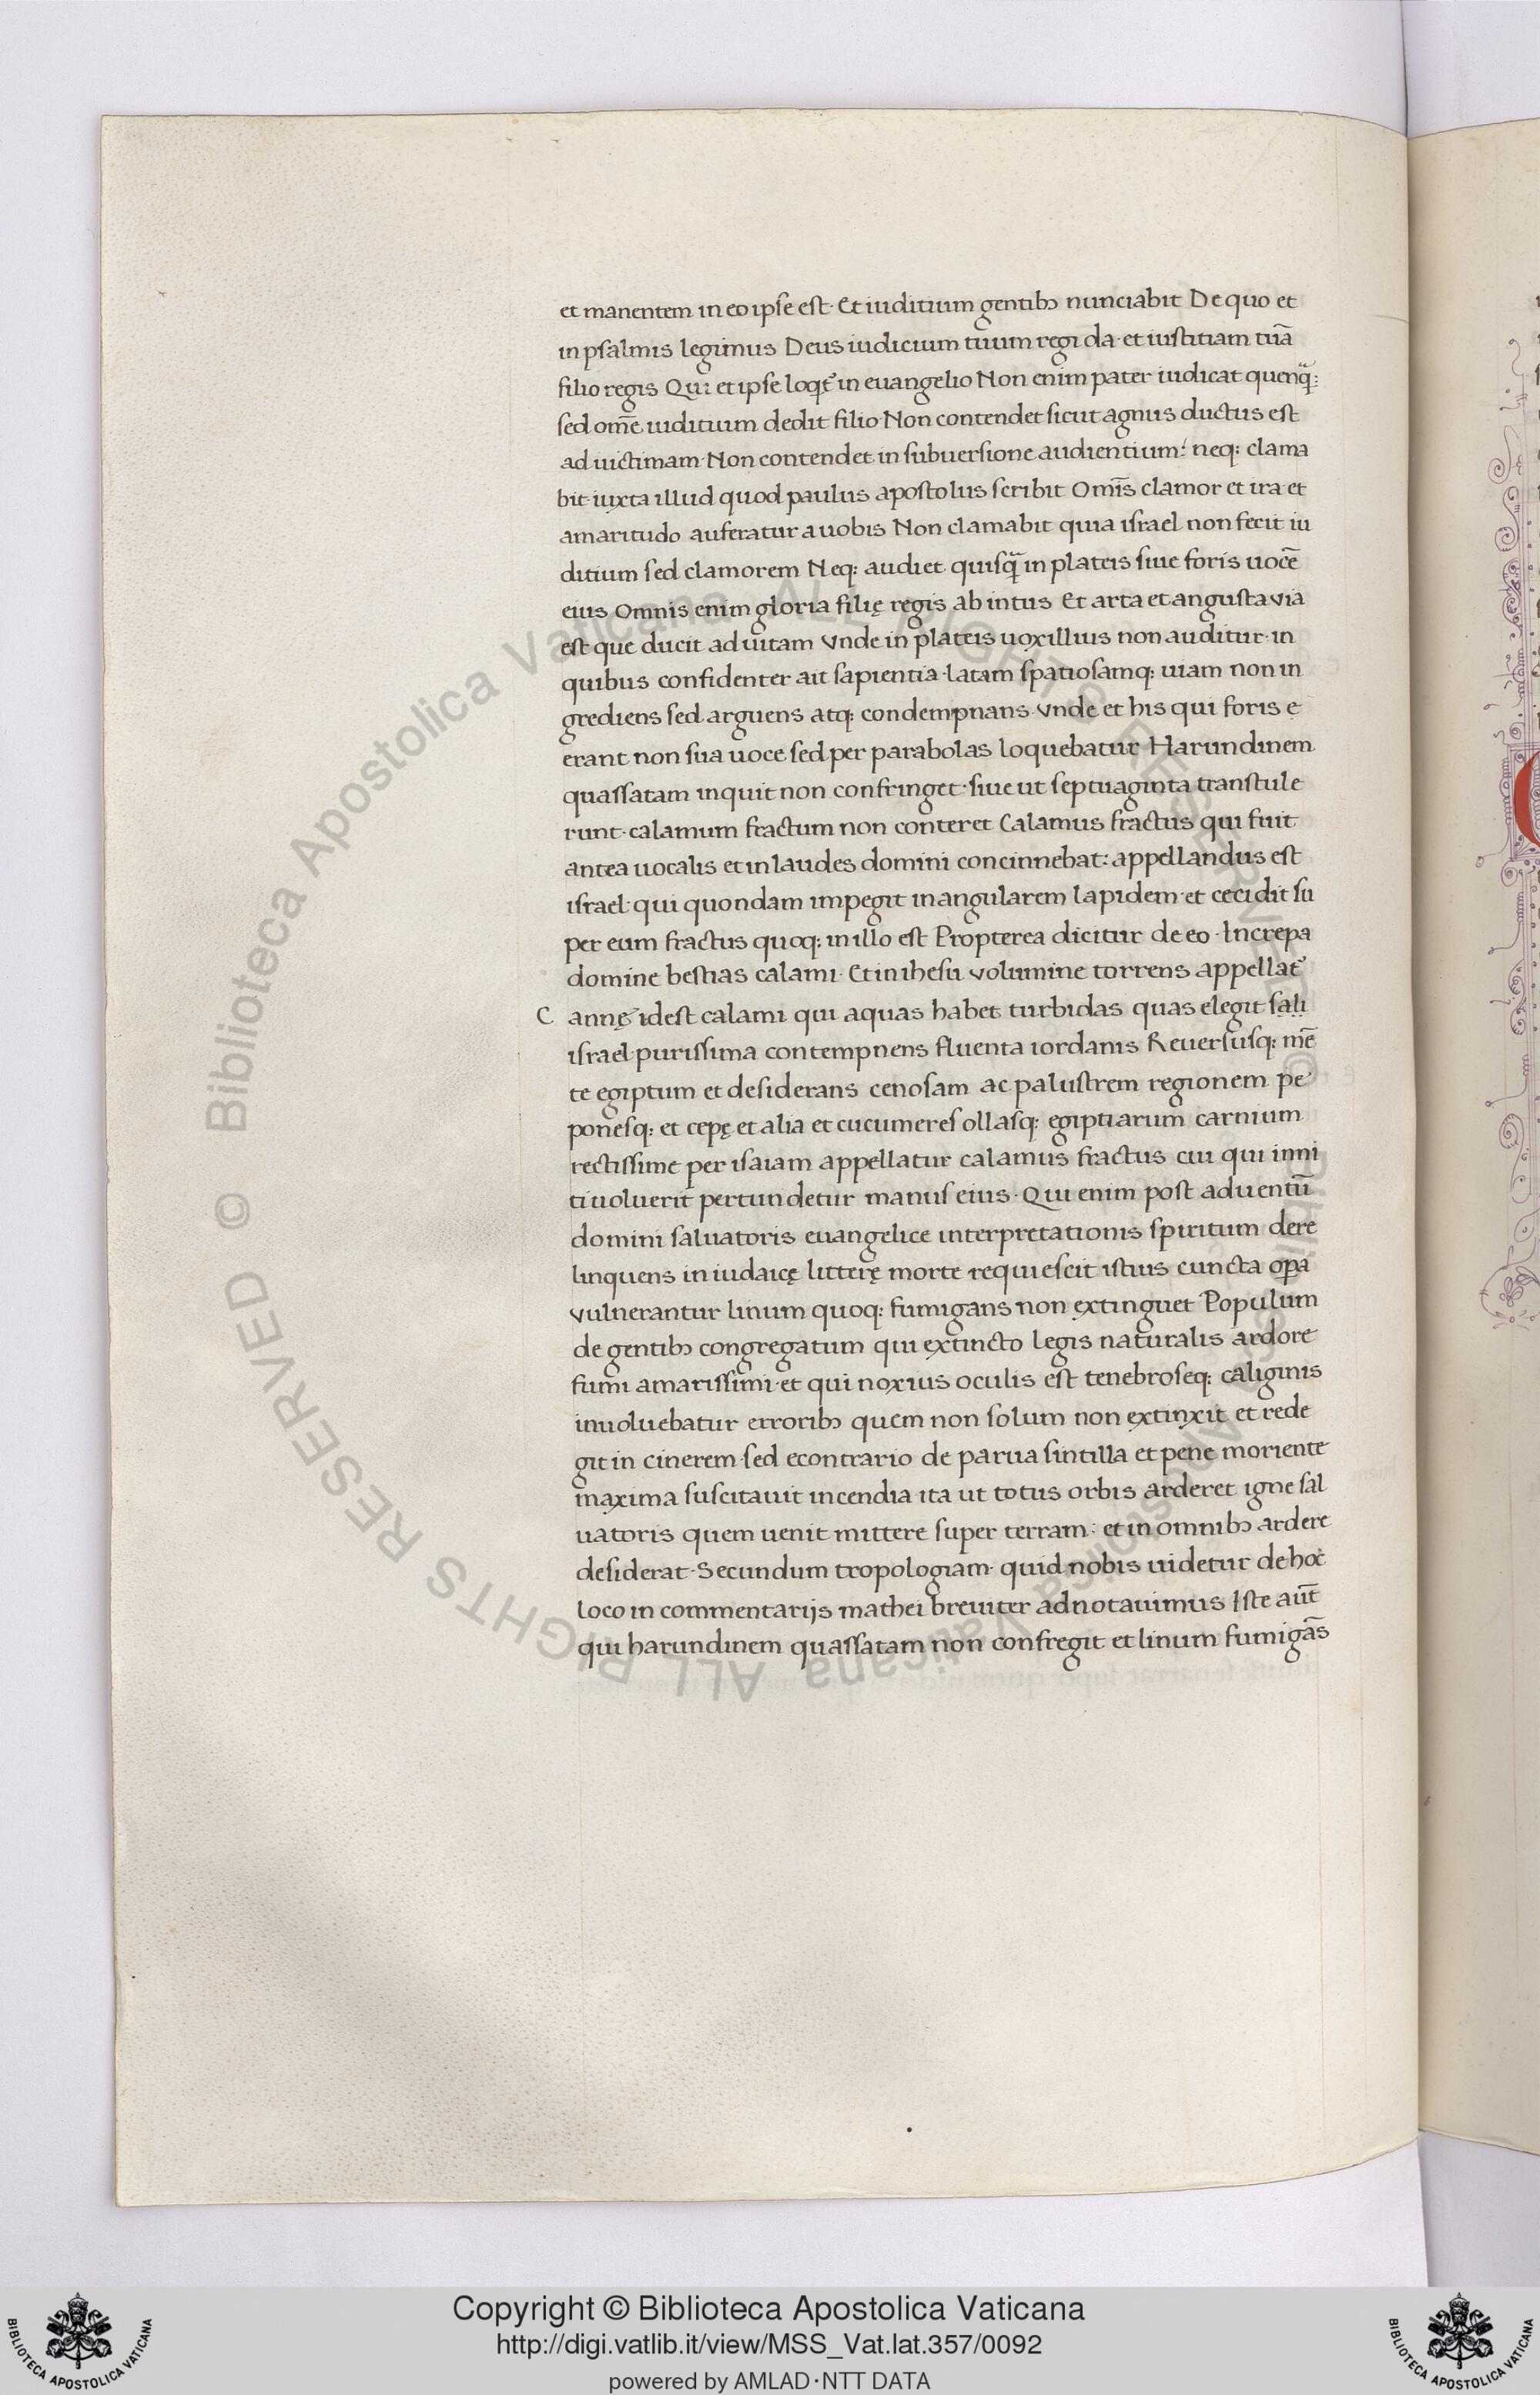 et manentem in eo ipse est· Et iuditium gentibꝫ nunciabit De quo et
in psalmis legimus Deus iudicium tuum regi da· et iustitiam tuā
filio regis Qui et ipse loqt᷒ in euangelio Non enim pater iudicat quenqᷓ:
sed om̄e iuditium dedit filio· Non contendet sicut agnus ductus est
ad uictimam· Non contendet in subuersione audientium: neq: clama
bit iuxta illud quod paulus apostolus scribit Om̄is clamor et ira et
amaritudo auferatur a uobis Non clamabit quia israel non fecit iu
ditium sed clamorem Neq: audiet quisqᷓ in plateis siue foris uocē
eius Omnis enim gloria filię regis ab intus Et arta et angusta via
est que ducit ad uitam Vnde in plateis uox illius non auditur· in
quibus confidenter ait sapientia· latam spatiosamq: uiam non in
grediens sed arguens atq: condempnans· Vnde et his qui foris e
erant non sua uoce sed per parabolas loquebatur Harundinem
quassatam inquit non confringet· siue ut septuaginta transtule
runt· calamum fractum non conteret Calamus fractus qui fuit
antea uocalis et in laudes domini concinnebat: appellandus est
israel· qui quondam impegit in angularem lapidem· et cecidit su
per eum fractus quoq: in illo est Propterea dicitur de eo· Increpa
domine bestias calami· Et in ihesu volumine torrens appellat᷒
C annę idest calami qui aquas habet turbidas quas elegit sali
israel· purissima contempnens fluenta iordanis Reuersusq: mē
te egiptum et desiderans cenosam ac palustrem regionem pe
ponesq: et cepę et alia et cucumeres ollasq: egiptiarum carnium
rectissime per isaiam appellatur calamus fractus cui qui inni
ti uoluerit pertundetur manus eius· Qui enim post aduentū
domini saluatoris euangelice interpretationis spiritum dere
linquens in iudaicę litterę morte requiescit istius cuncta oꝑa
vulnerantur linum quoq: fumigans non extinguet Populum
de gentibꝫ congregatum qui extincto legis naturalis ardore
fumi amarissimi· et qui noxius oculis est tenebroseq: caliginis
inuoluebatur erroribꝫ quem non solum non extinxit et rede
git in cinerem· sed econtrario de parua sintilla et pene moriente
maxima suscitauit incendia ita ut totus orbis arderet igne sal
uatoris quem uenit mittere super terram: et in omnibꝫ ardere
desiderat· Secundum tropologiam· quid nobis uidetur de hoc
loco in commentarijs mathei breuiter adnotauimus Iste aut̄
qui harundinem quassatam non confregit et linum fumigās
Biblioteca Apostolica Vaticana ALL RIGHTS RESERVED ©
Biblioteca Apostolica Vaticana ALL RIGHTS RESERVED ©
Copyright © Biblioteca Apostolica Vaticana
http://digi.vatlib.it/view/MSS_Vat.lat.357/0092
powered by AMLAD·NTT DATA
BIBLIOTECA APOSTOLICA VATICANA
BIBLIOTECA APOSTOLICA VATICANA